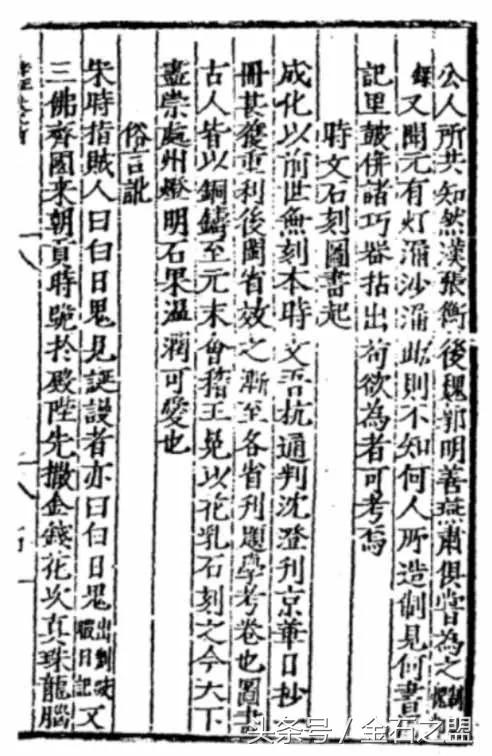 公人所共知然漢張衡後魏郭明善燕肅俱嘗為之
錄又聞元有灯漏沙漏此則不知何人所造制見何書
記里皷併諸巧器拈出苟欲為者可考焉
時文石刻圖書起
成化以前世無刻本時文吾杭通判沈澄刊京華日抄一
冊甚獲重利後閩省效之漸至各省刊題學考卷也圖書
古人皆以銅鑄至元末會稽王冕以花乳石刻之今天下
盡崇處州燈明石果溫潤可愛也
俗言訛
宋時指賊人曰白日鬼見誕謾者亦曰白日鬼出劉跂暇日記又
三佛齊國來朝貢時跪於殿陛先撒金錢花次真珠龍腦
头条号 / 金石之盟